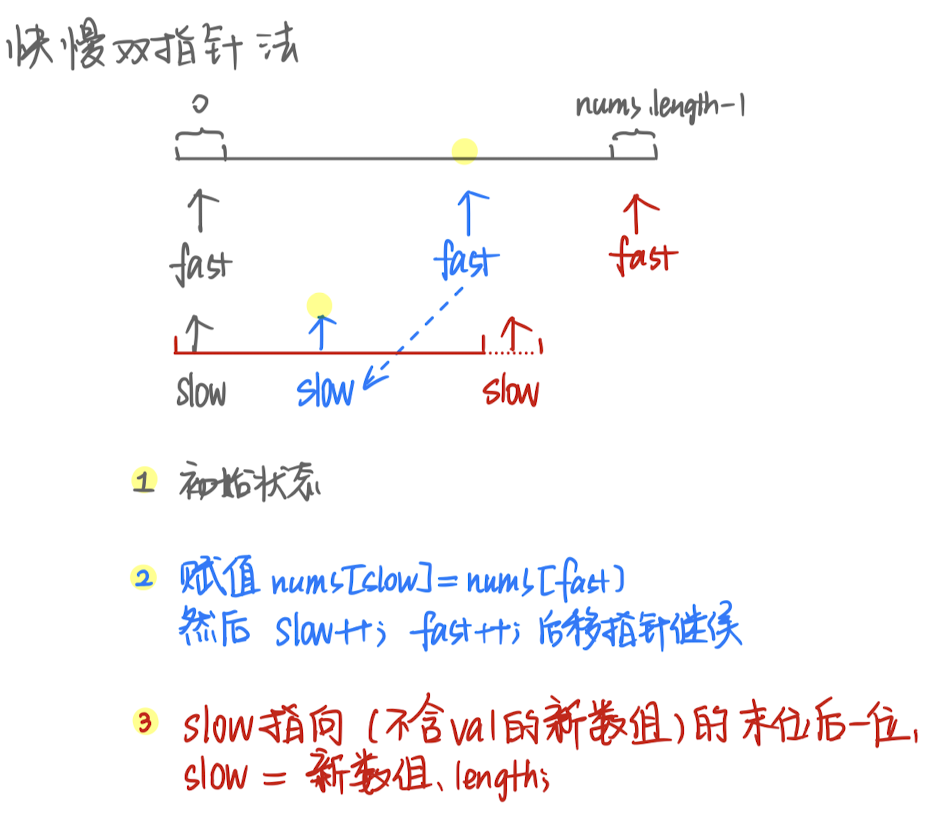 快慢双指针法
0
nums.length-1
fast
fast
fast
slow
slow
slow
1 初始状态
2 赋值 nums[slow]=nums[fast]
然后 slow++; fast++; 后移指针继续
3 slow指向(不含val的新数组)的末位后一位,
slow = 新数组.length;